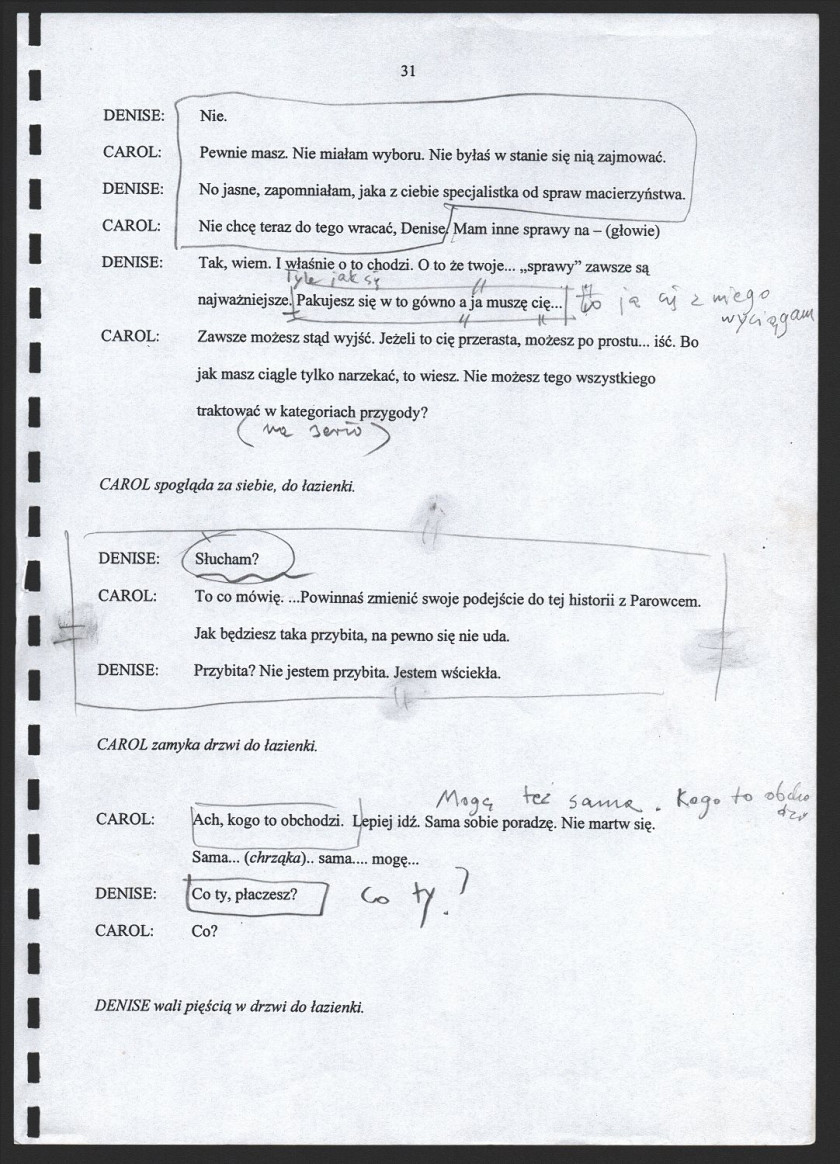 31
DENISE: Nie.
CAROL: Pewnie masz. Nie miałam wyboru. Nie byłaś w stanie się nią zajmować.
DENISE: No jasne, zapomniałam, jaka z ciebie specjalistka od spraw macierzyństwa.
CAROL: Nie chcę teraz do tego wracać, Denise. Mam inne sprawy na – (głowie)
DENISE: Tak, wiem. I właśnie o to chodzi. O to że twoje... „sprawy” zawsze są
Tyle jak się
najważniejsze. Pakujesz się w to gówno a ja muszę cię... to ja cię z niego
wyciągam
CAROL: Zawsze możesz stąd wyjść. Jeżeli to cię przerasta, możesz po prostu... iść. Bo
jak masz ciągle tylko narzekać, to wiesz. Nie możesz tego wszystkiego
traktować w kategoriach przygody?
(na serio)
CAROL spogląda za siebie, do łazienki.
DENISE: Słucham?
CAROL: To co mówię. ...Powinnaś zmienić swoje podejście do tej historii z Parowcem.
Jak będziesz taka przybita, na pewno się nie uda.
DENISE: Przybita? Nie jestem przybita. Jestem wściekła.
CAROL zamyka drzwi do łazienki.
Mogę też sama. Kogo to obcho
dzi
CAROL: Ach, kogo to obchodzi. Lepiej idź. Sama sobie poradzę. Nie martw się.
Sama... (chrząka).. sama.... mogę...
DENISE: Co ty, płaczesz? Co ty?
CAROL: Co?
DENISE wali pięścią w drzwi do łazienki.